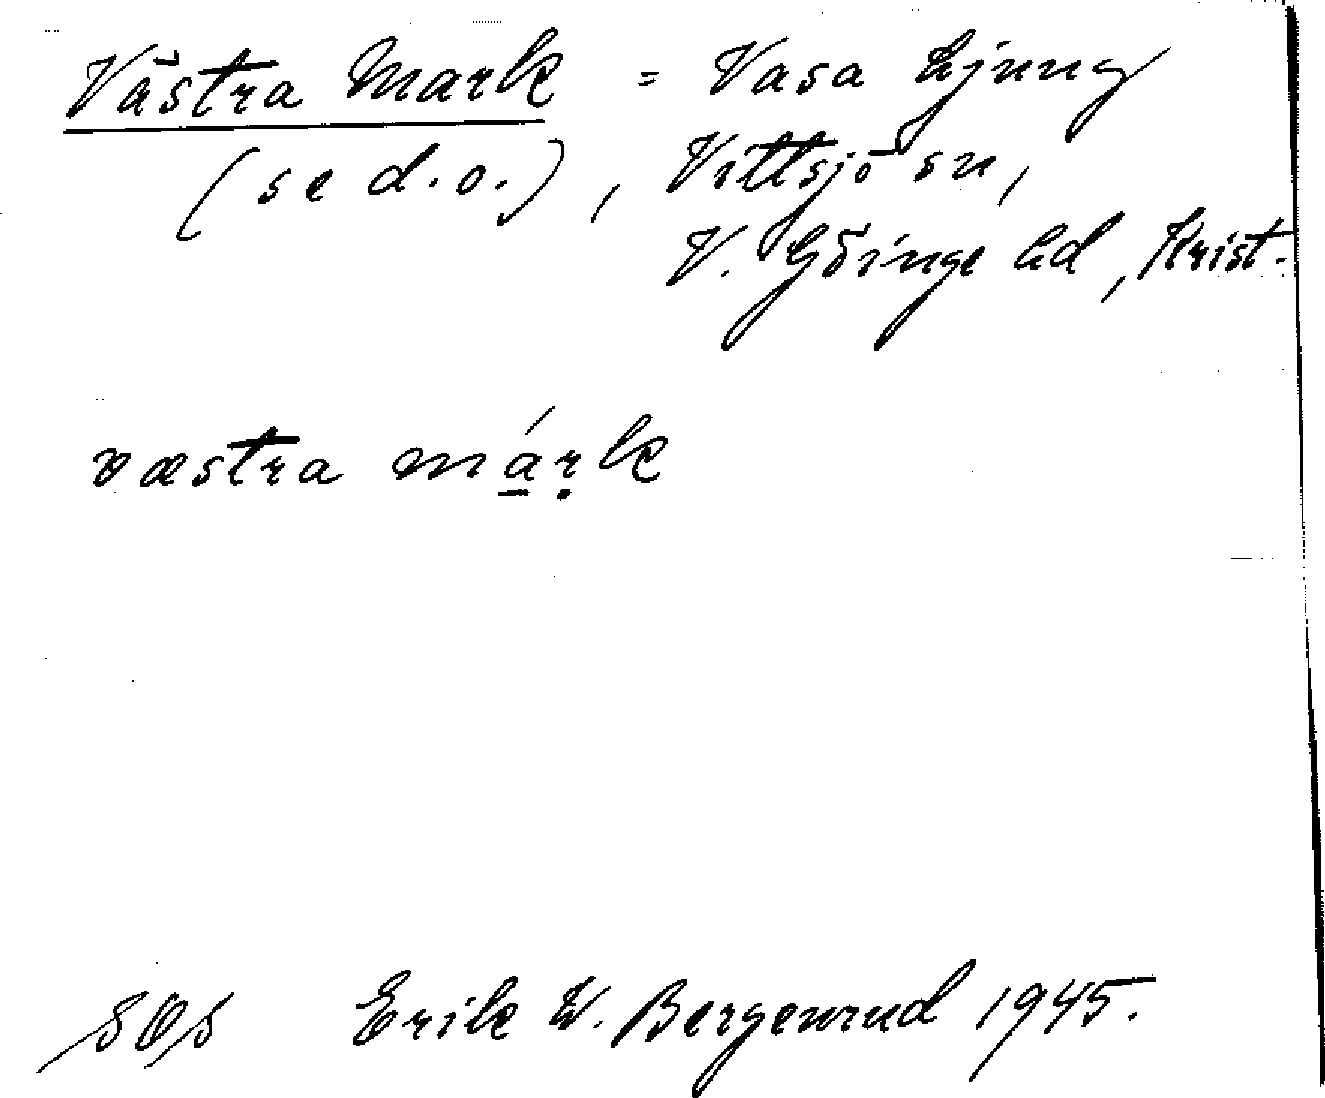 Västra Mark = Vasa Ljung
(se d.o.), Vittsjö sn,
V. Göinge hd, Krist.
væstra má̱ṛk
SOs Erik W. Bergenrud 1945.